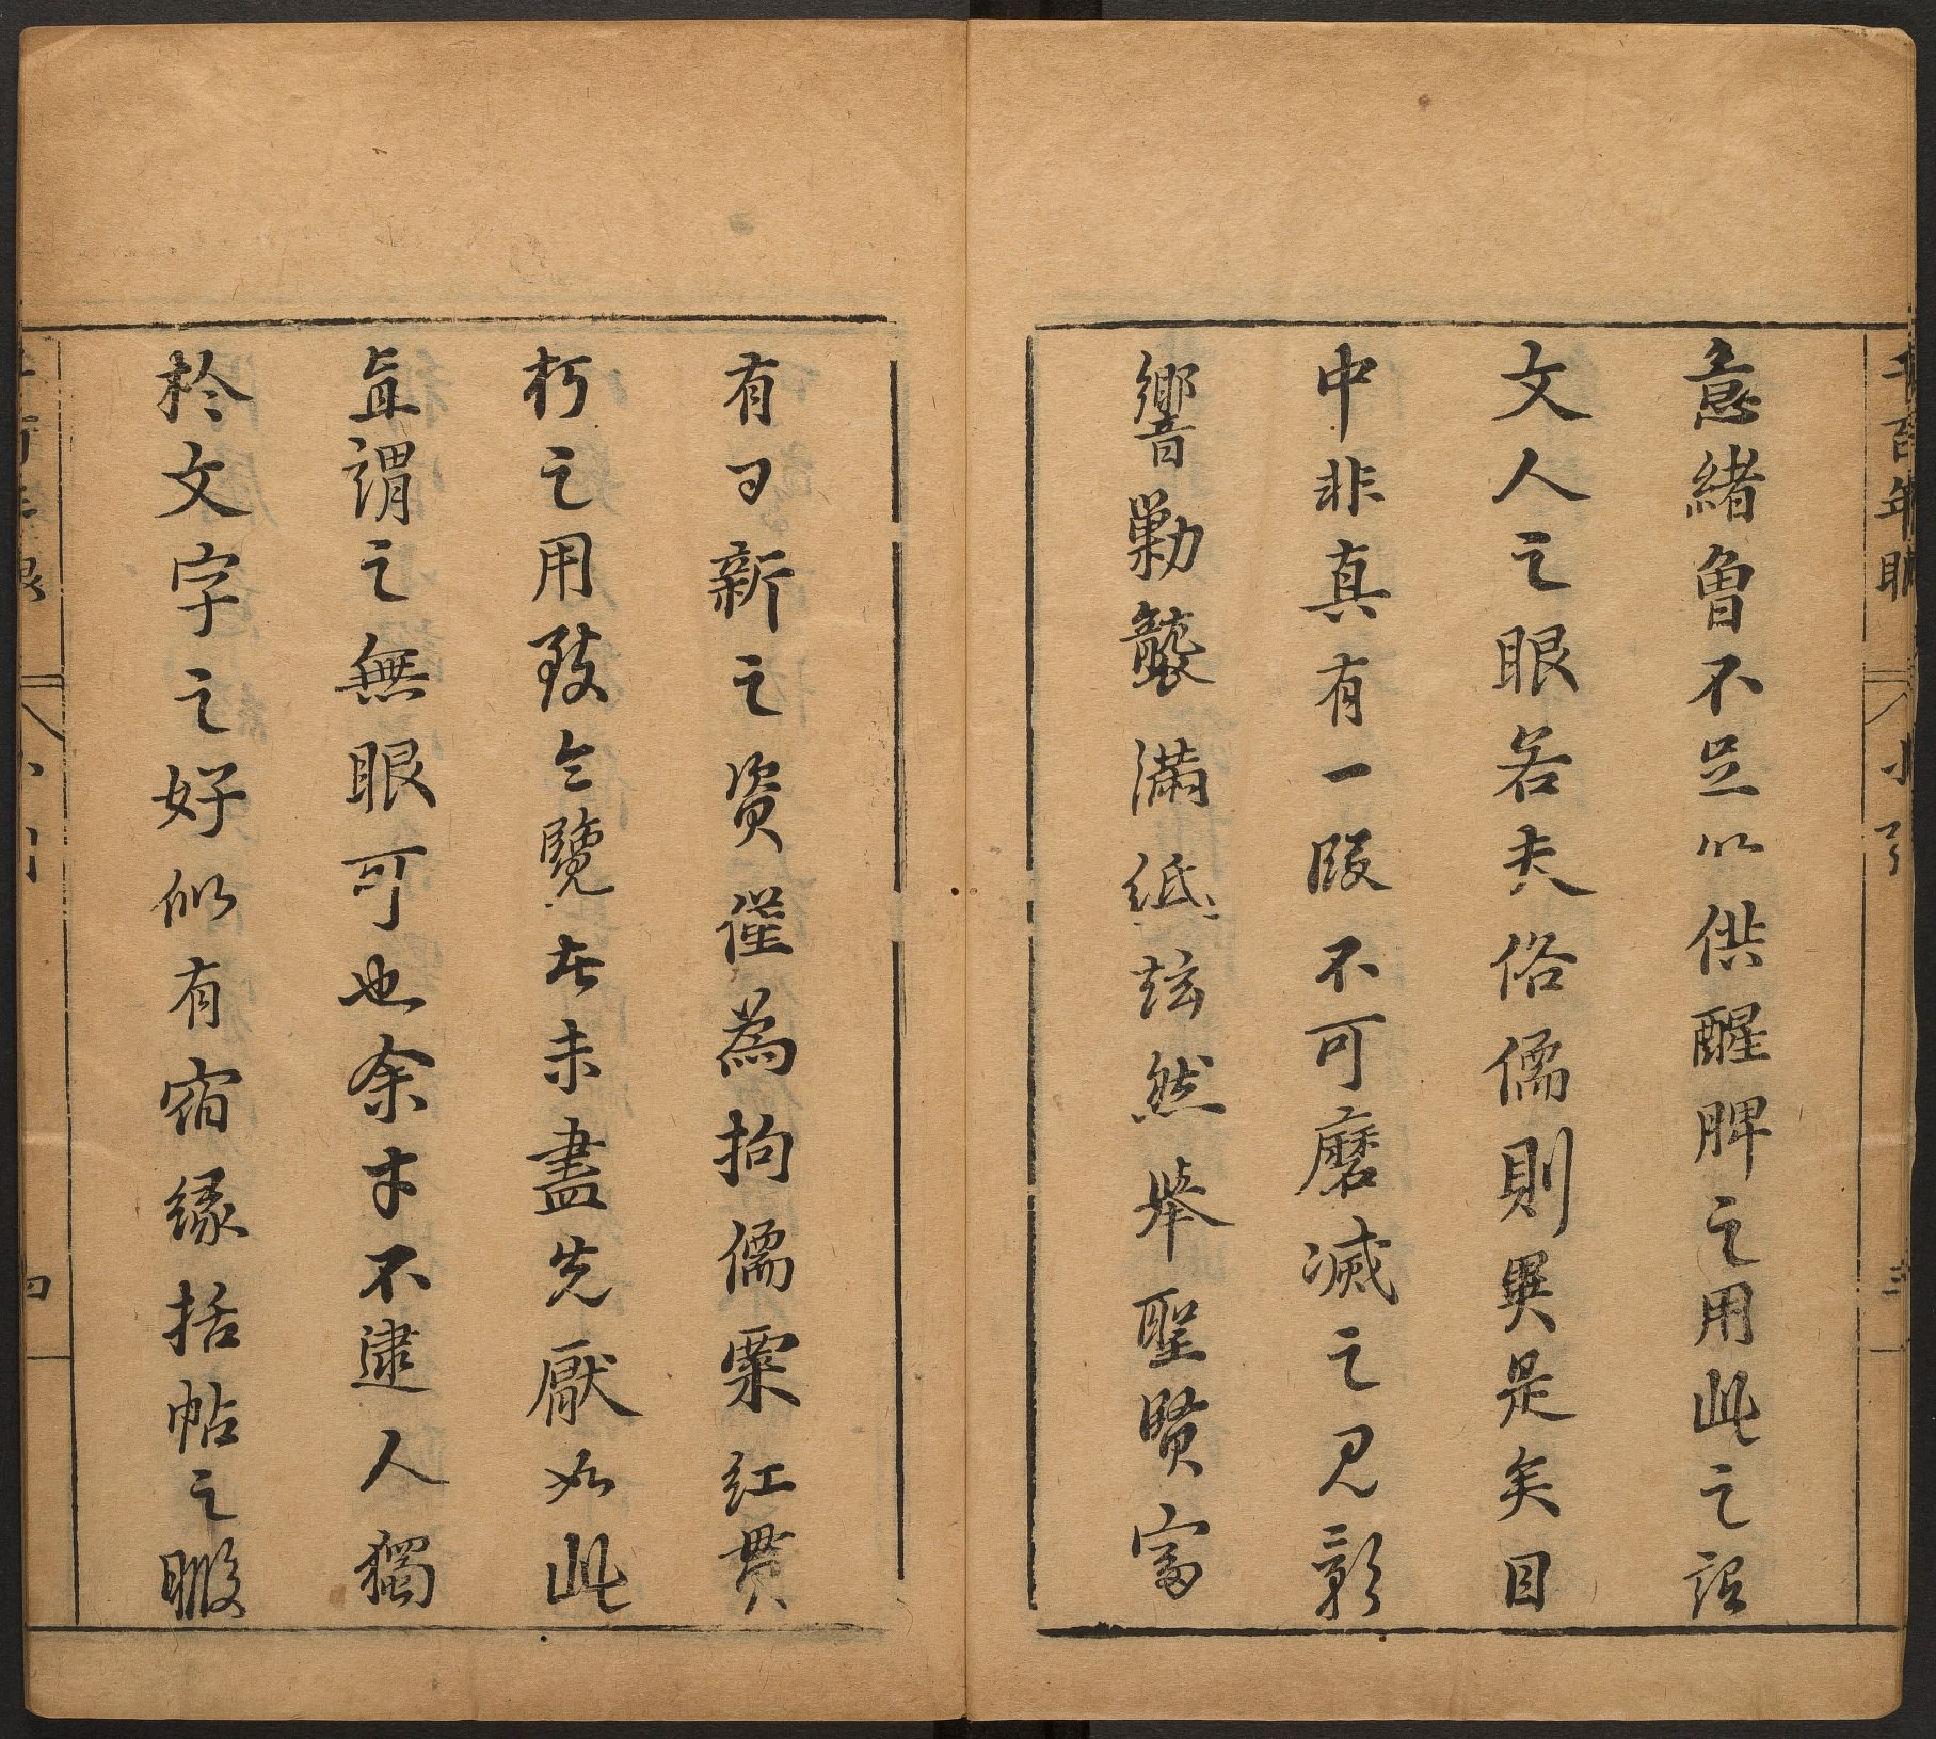 千百年眼 小引 三
意緒曾不足以供醒脾之用此之詔
文人之眼若夫俗儒則異是矣目
中非真有一段不可磨滅之見影
響勦襲滿紙炫然舉聖賢富
有日新之資僅為拘儒粟紅貫
朽之用致令覽者未盡先厭如此
直謂之無眼可也余才不逮人獨
於文字之好似有宿緣括帖之暇
四